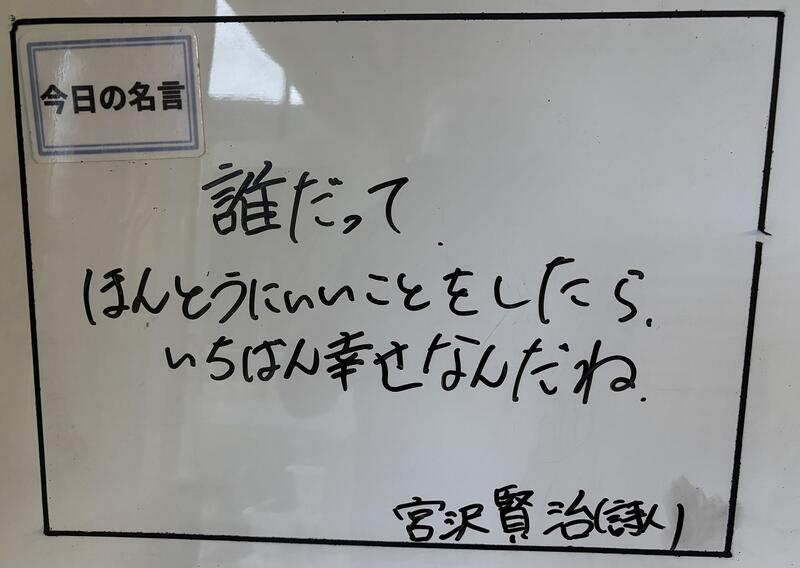 今日の名言
誰だって、
ほんとうにいいことをしたら、
いちばん幸せなんだね。
宮沢賢治(詩人)